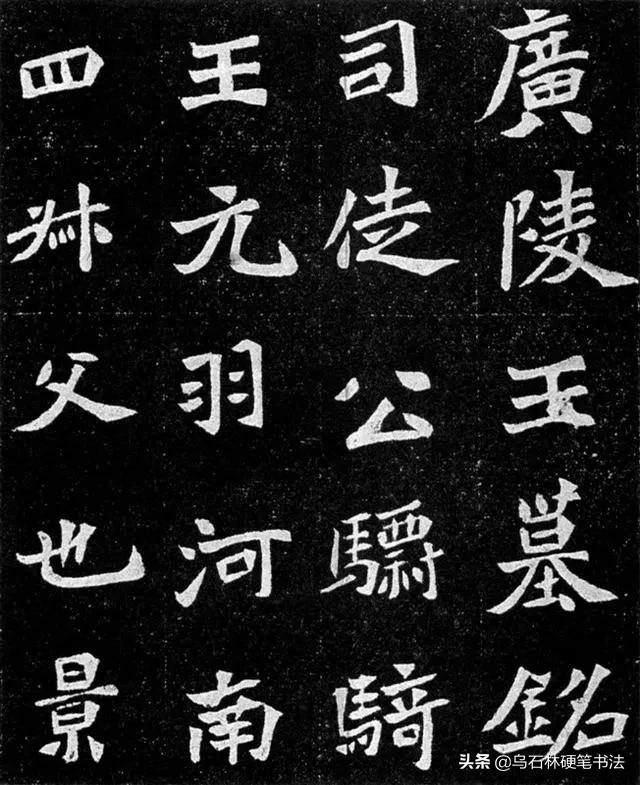 廣陵王墓銘
司徒公驃騎
王元羽河南
四叔父也景
头条 @乌石林硬笔书法